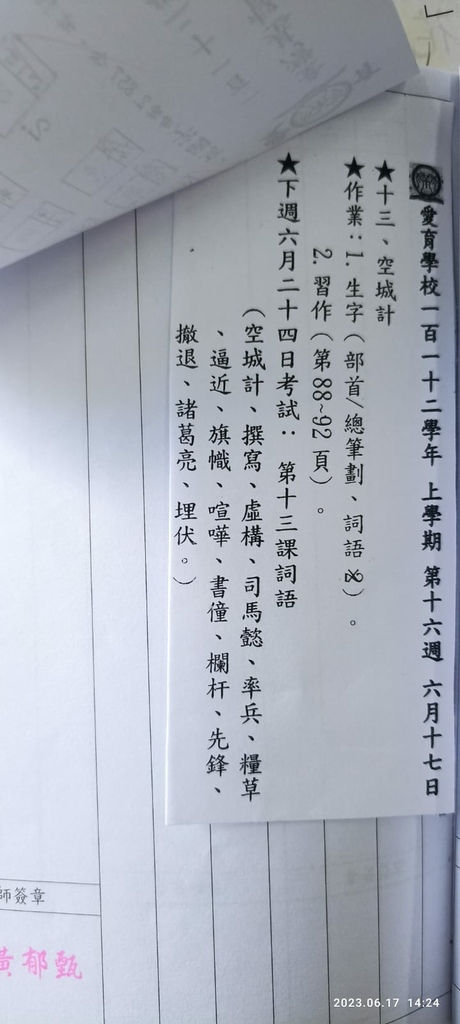 愛育學校一百一十二學年 上學期 第十六週 六月十七日
★十三、空城計
★作業：1. 生字（部首/總筆劃、詞語×2）。
2. 習作（第88~92頁）。
★下週六月二十四日考試： 第十三課詞語
（空城計、撰寫、虛構、司馬懿、率兵、糧草
、逼近、旗幟、喧嘩、書僮、欄杆、先鋒、
撤退、諸葛亮、埋伏。）
師簽章
黃郁甄
2023.06.17 14:24